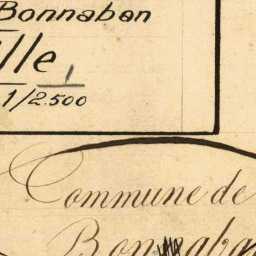 Bonnaban
lle
1
1/2.500
Commune de
Bonnaba